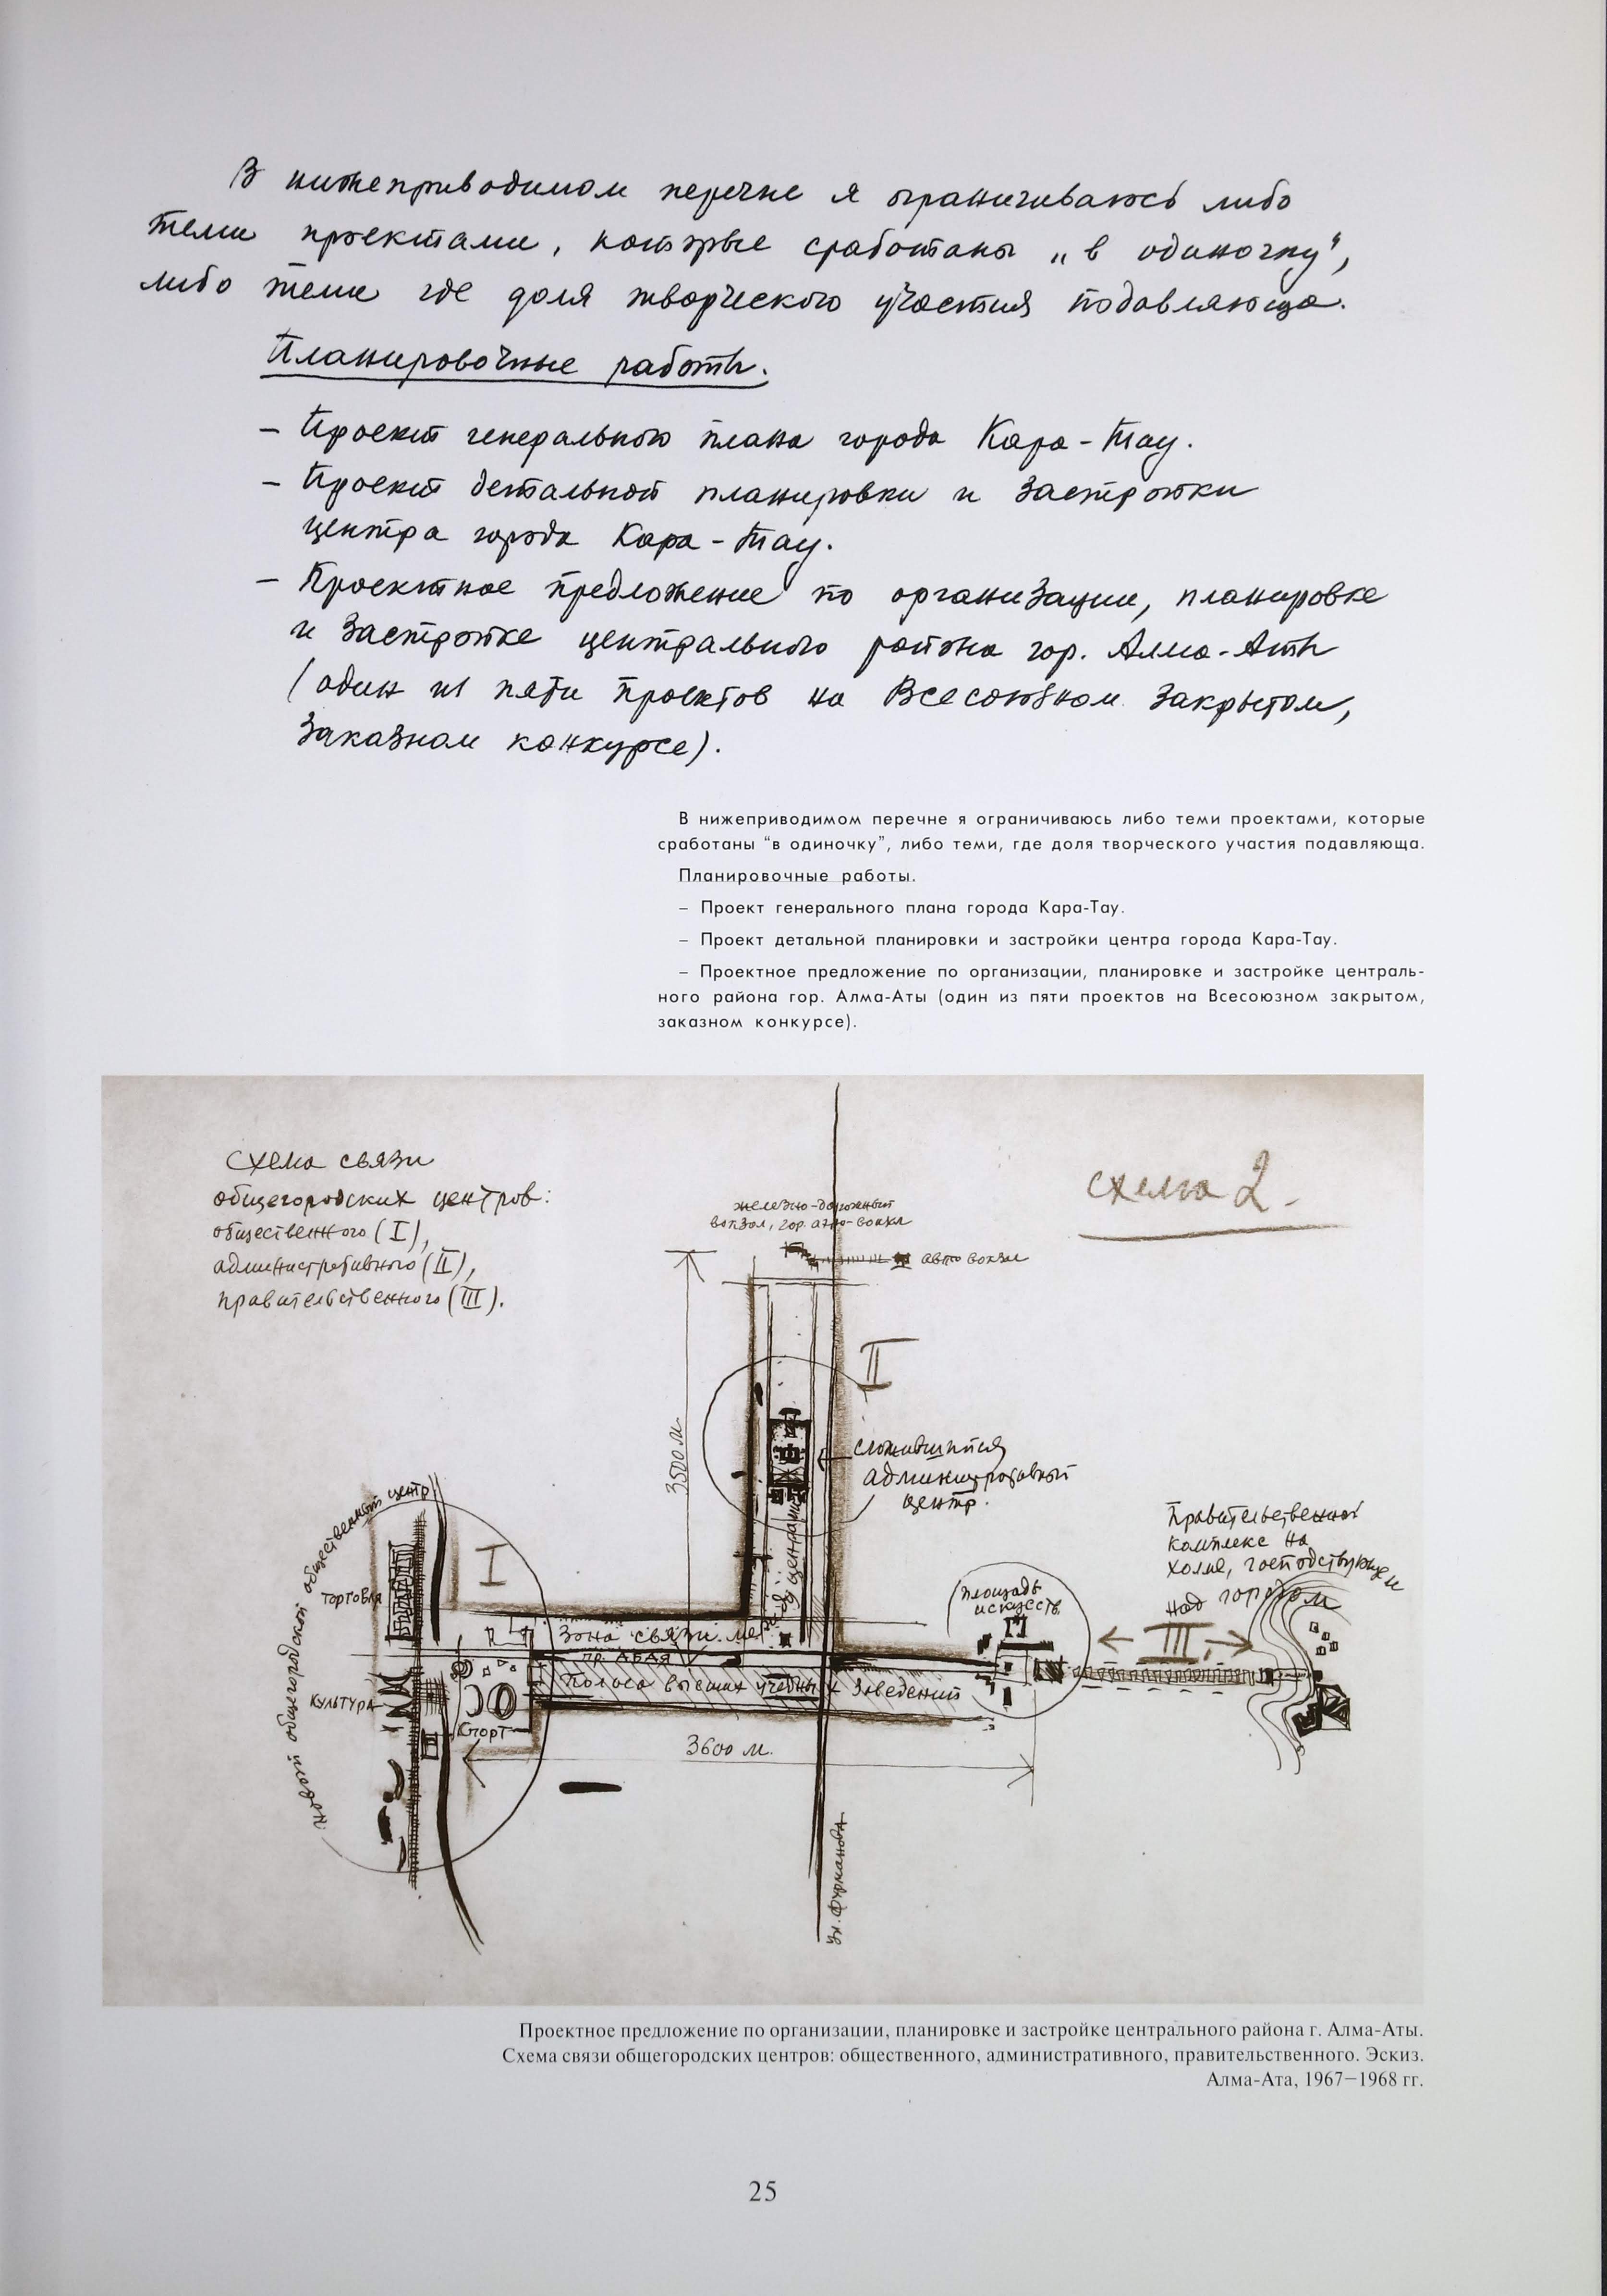 В нижеприводимом перечне я ограничиваюсь либо
теми проектами, которые сработаны „в одиночку",
либо теми где доля творческого участия подавляюща.
Планировочные работы.
– Проект генерального плана города Кара-Тау.
– Проект детальной планировки и застройки
центра города Кара-Тау.
– Проектное предложение по организации, планировке
и застройке центрального района гор. Алма-Аты
(один из пяти проектов на Всесоюзном закрытом,
заказном конкурсе).
В нижеприводимом перечне я ограничиваюсь либо теми проектами, которые
сработаны “в одиночку”, либо теми, где доля творческого участия подавляюща.
Планировочные работы.
– Проект генерального плана города Кара-Тау.
– Проект детальной планировки и застройки центра города Кара-Тау.
– Проектное предложение по организации, планировке и застройке централь-
ного района гор. Алма-Аты (один из пяти проектов на Всесоюзном закрытом,
заказном конкурсе).
Схема связи
общегородских центров:
общественного (I),
административного (II),
правительственного (III).
схема 2.
железно-дорожный
вокзал, гор. аэро-вокзал
авто вокзал
II
3500 м.
сложившийся
административный
центр.
Новый общегородской общественный центр
I
Торговля
Правительственный
комплекс на
холме, господствующем
над городом
площадь
искусств
III
Зона связи между центрами
пр. АБАЯ
Полоса высших учебных заведений
культура
Спорт
3600 м.
Ул. Фурманова
Проектное предложение по организации, планировке и застройке центрального района г. Алма-Аты.
Схема связи общегородских центров: общественного, административного, правительственного. Эскиз.
Алма-Ата, 1967–1968 гг.
25